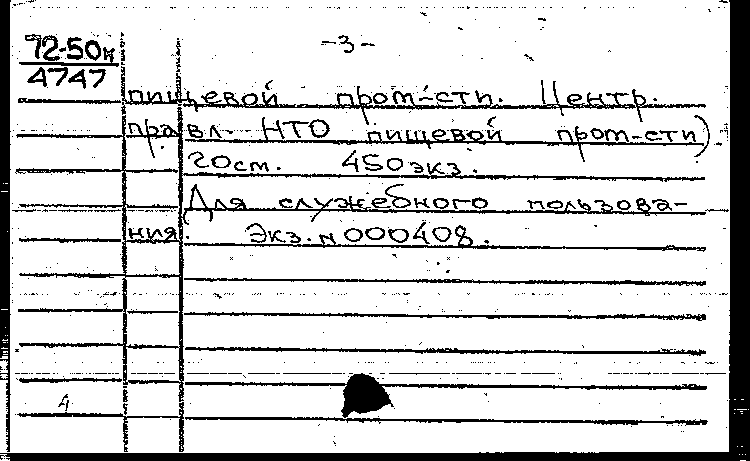 72-50н
4747
-3-
пищевой пром-сти. Центр.
правл. НТО пищевой пром-сти)
20см. 450экз.
Для служебного пользова-
ния. Экз. N 000408.
4